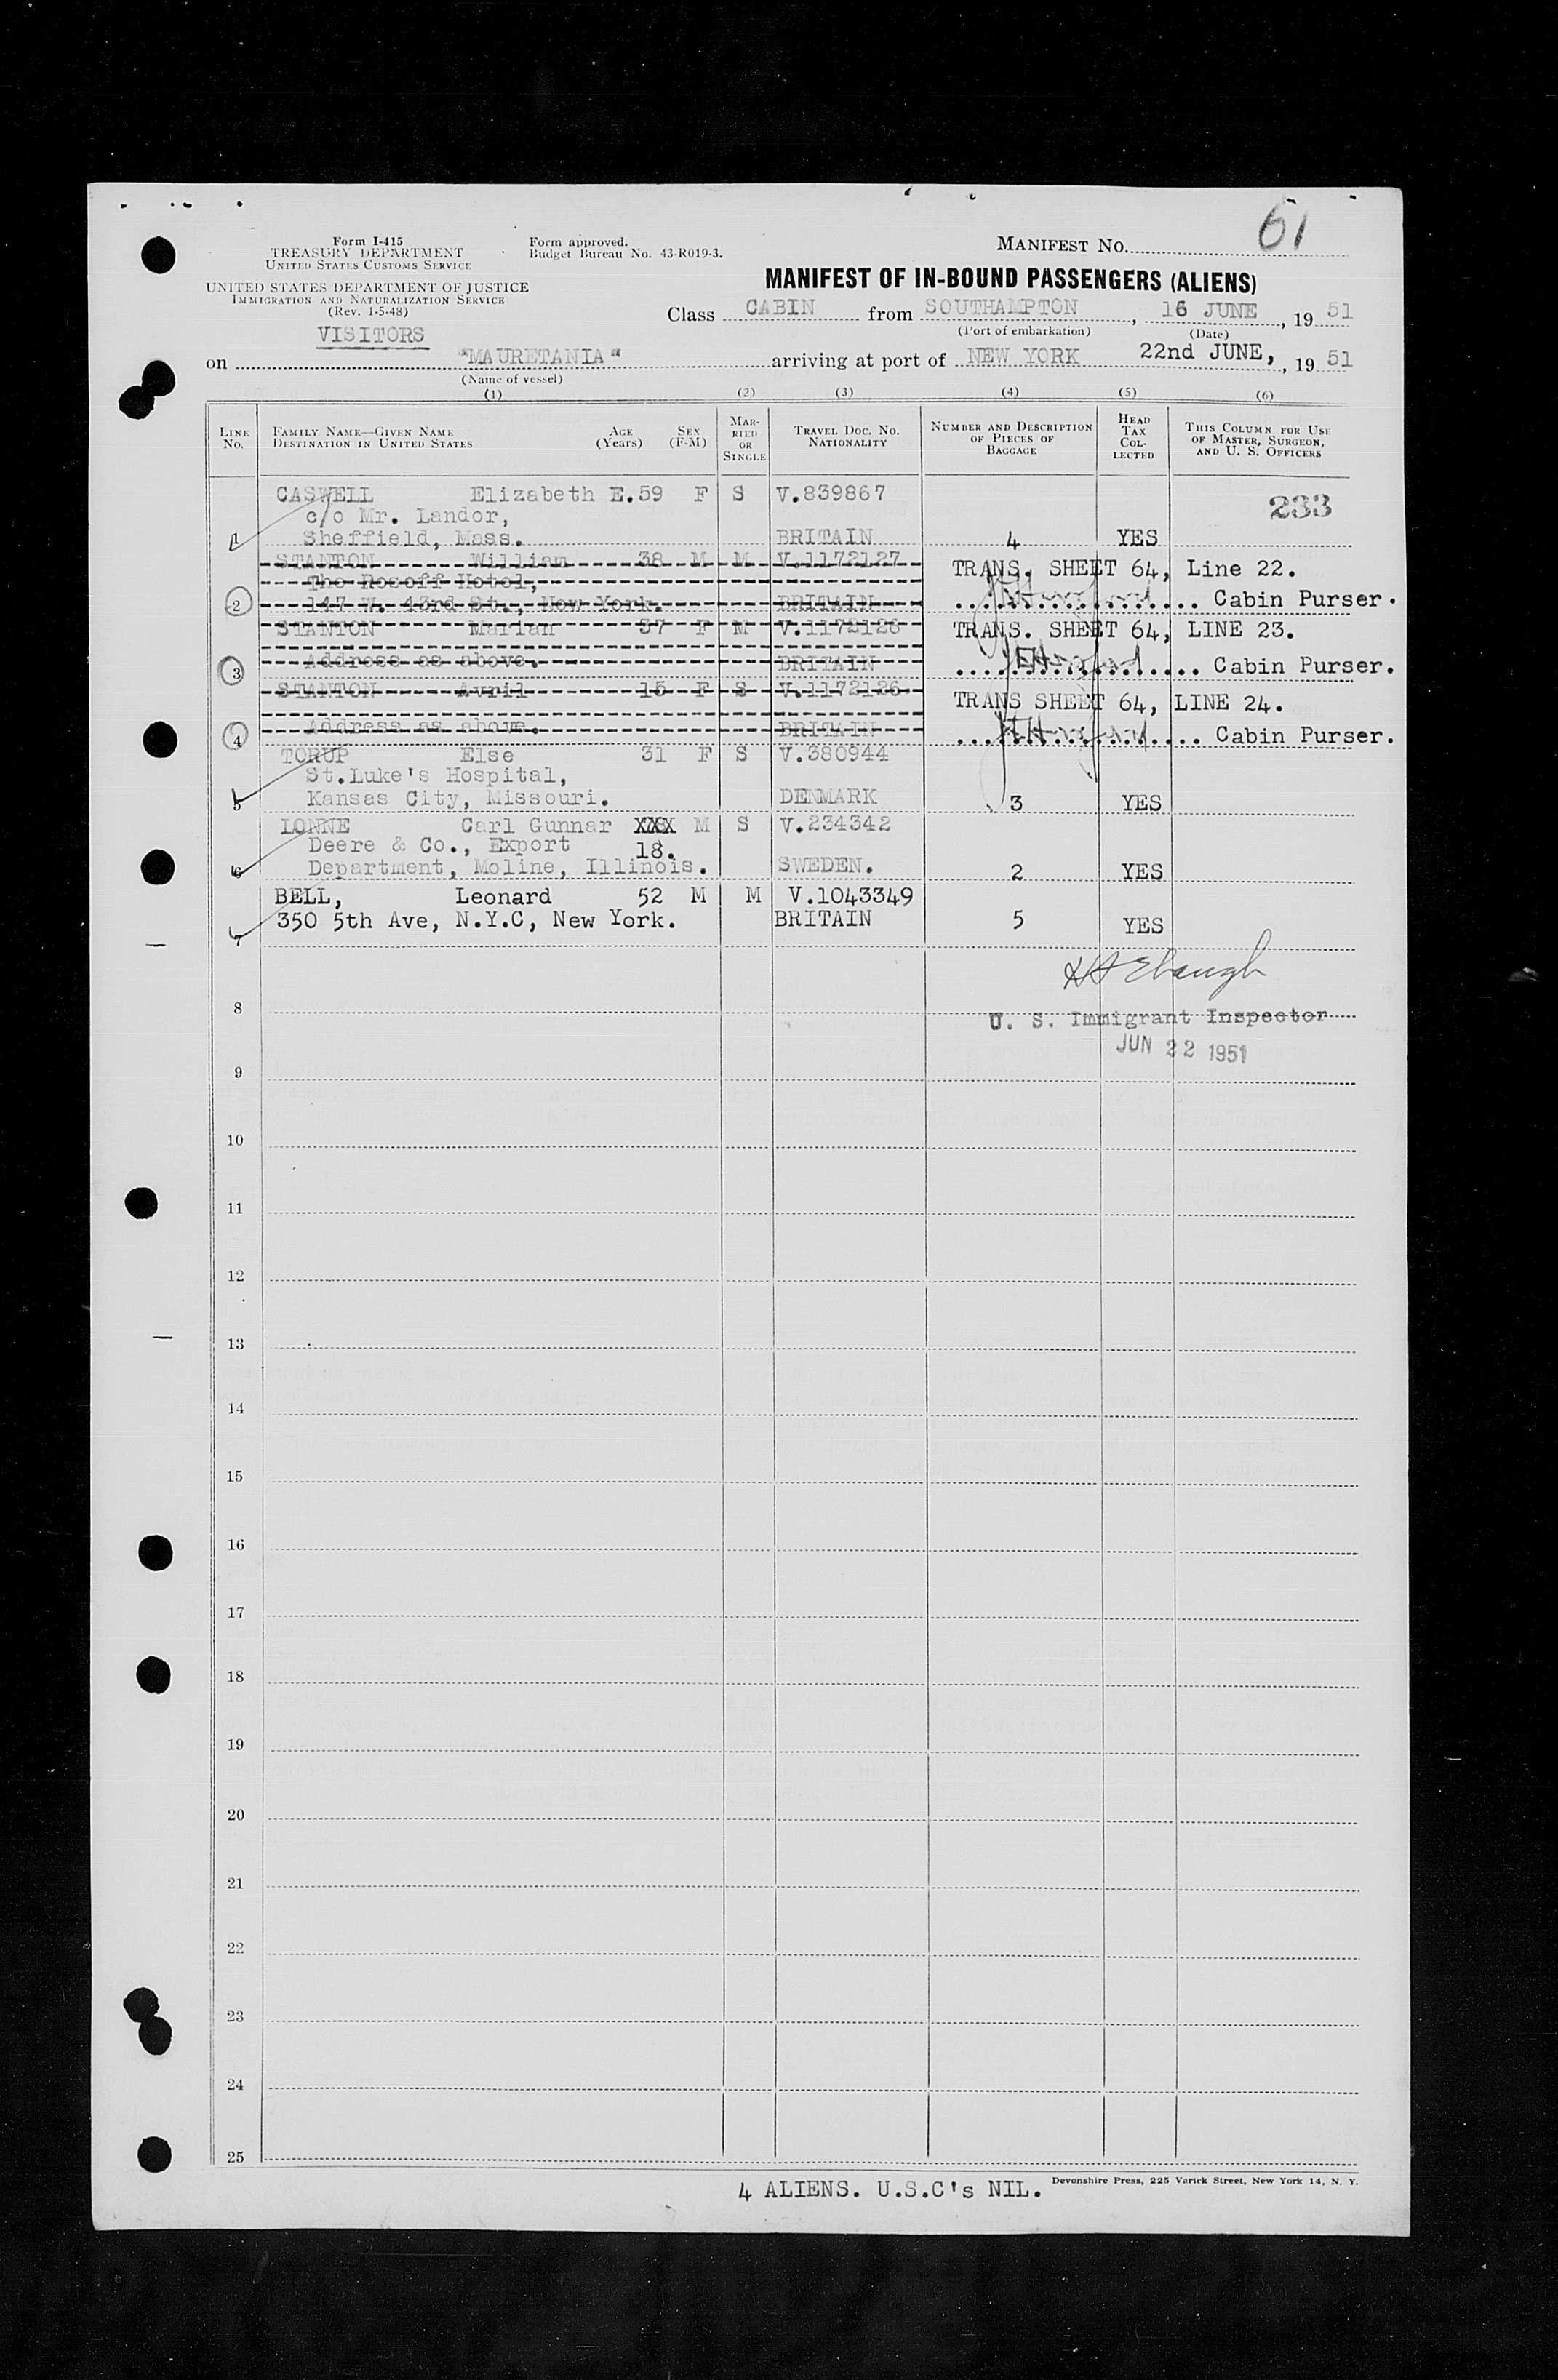 61
Form I-415
TREASURY DEPARTMENT
UNITED STATES CUSTOMS SERVICE
Form approved.
Budget Bureau No. 43-R019-3.
MANIFEST No.
UNITED STATES DEPARTMENT OF JUSTICE
IMMIGRATION AND NATURALIZATION SERVICE
(Rev. 1-5-48)
MANIFEST OF IN-BOUND PASSENGERS (ALIENS)
Class CABIN from SOUTHAMPTON, 16 JUNE, 1951
(Port of embarkation) (Date)
VISITORS
on "MAURETANIA" arriving at port of NEW YORK 22nd JUNE, 1951
(Name of vessel)
(1) (2) (3) (4) (5) (6)
LINE No. FAMILY NAME—GIVEN NAME DESTINATION IN UNITED STATES AGE (Years) SEX (F-M) MARRIED OR SINGLE TRAVEL DOC. NO. NATIONALITY NUMBER AND DESCRIPTION OF PIECES OF BAGGAGE HEAD TAX COLLECTED THIS COLUMN FOR USE OF MASTER, SURGEON, AND U. S. OFFICERS
CASWELL Elizabeth E. 59 F S V.839867 233
c/o Mr. Landor,
1 Sheffield, Mass. BRITAIN 4 YES
STANTON William 38 M M V.1172127 TRANS. SHEET 64, Line 22.
The Rosoff Hotel,
2 147 W. 43rd St., New York. BRITAIN Cabin Purser.
STANTON Marian 37 F M V.1172128 TRANS. SHEET 64, LINE 23.
3 Address as above. BRITAIN Cabin Purser.
STANTON Avril 15 F S V.1172126 TRANS SHEET 64, LINE 24.
4 Address as above. BRITAIN Cabin Purser.
TORUP Else 31 F S V.380944
St.Luke's Hospital,
5 Kansas City, Missouri. DENMARK 3 YES
LONNE Carl Gunnar XXX M S V.234342
Deere & Co., Export 18.
6 Department, Moline, Illinois. SWEDEN. 2 YES
BELL, Leonard 52 M M V.1043349
350 5th Ave, N.Y.C, New York. BRITAIN 5 YES
7
8
U. S. Immigrant Inspector
JUN 22 1951
9
10
11
12
13
14
15
16
17
18
19
20
21
22
23
24
25
4 ALIENS. U.S.C's NIL.
Devonshire Press, 225 Varick Street, New York 14, N. Y.